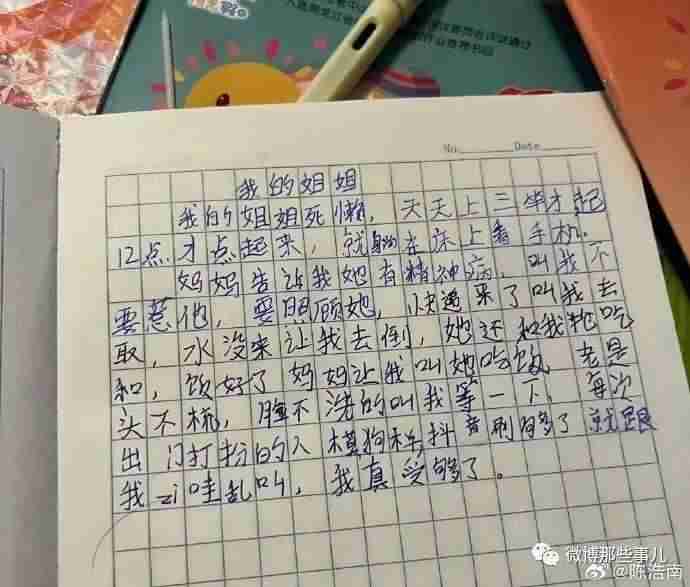 No.
Date
我的姐姐
我的姐姐死懒，天天上三竿才起
12点才点起来，就躺在床上看手机。
妈妈告诉我她有精神病，叫我不
要惹他，要照顾她，快递来了叫我去
取，水没来让我去倒，她还和我抢吃
和，饭好了妈妈让我叫她吃饭，老是
头不梳，脸不洗的叫我等一下，每次
出门打扮的人模狗样抖音刷够了就跟
我zi哇乱叫，我真受够了。
微博那些事儿
@陈浩南